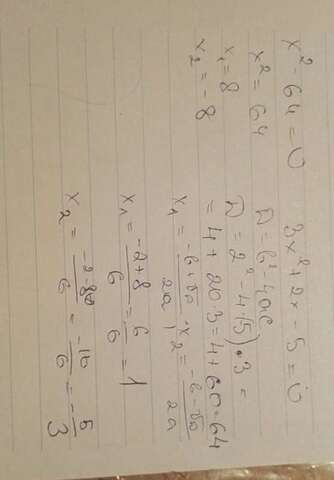 x² - 64 = 0
x² = 64
x₁ = 8
x₂ = -8
3x² + 2x - 5 = 0
D = b² - 4ac
D = 2² - 4·(-5)·3 =
= 4 + 20·3 = 4 + 60 = 64
x₁ = (-b + √D)/2a ; x₂ = (-b - √D)/2a
x₁ = (-2 + 8)/6 = 6/6 = 1
x₂ = (-2 - 8)/6 = -10/6 = -5/3